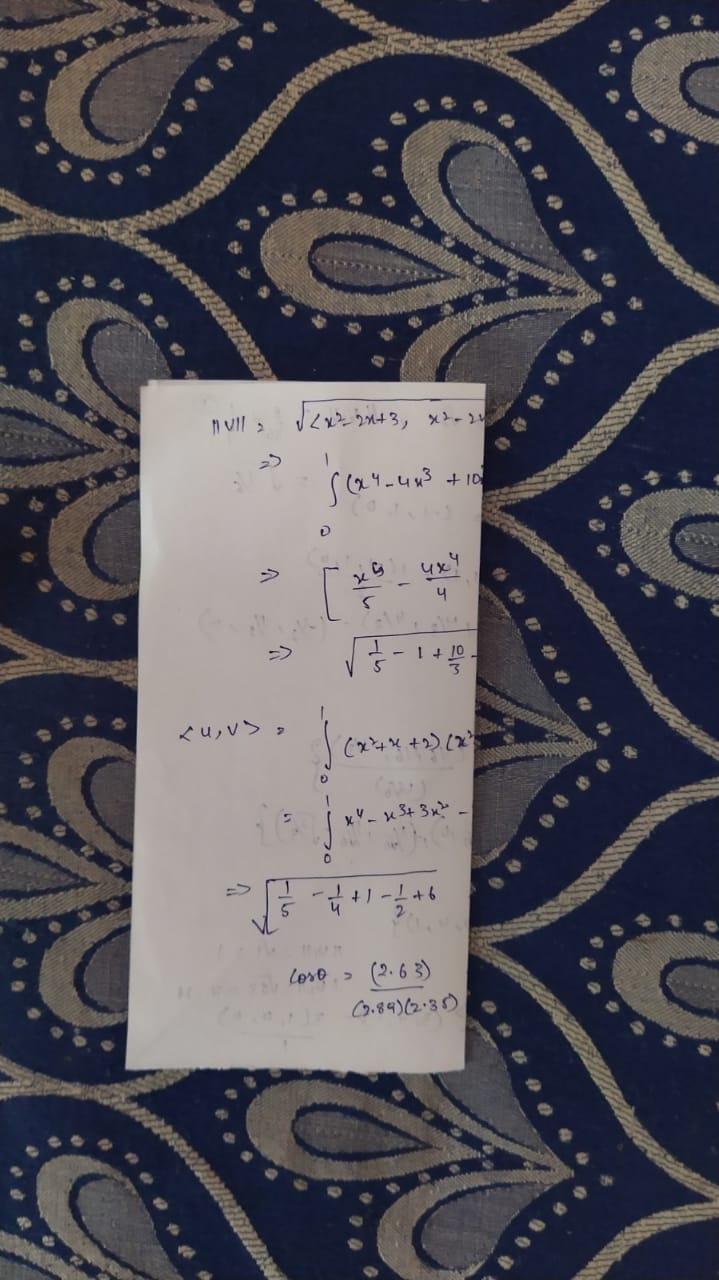 ||v|| = √<x²-2x+3, x²-2x
⇒ ∫₀¹ (x⁴-4x³ +10x
⇒ [ x⁵/5 - 4x⁴/4
⇒ √ 1/5 - 1 + 10/3 -
<u,v> = ∫₀¹ (x²+x+2) (x²
= ∫₀¹ x⁴-x³+3x² -
⇒ √ 1/5 - 1/4 +1 - 1/2 +6
cosθ = (2.63) / (2.89)(2.35)